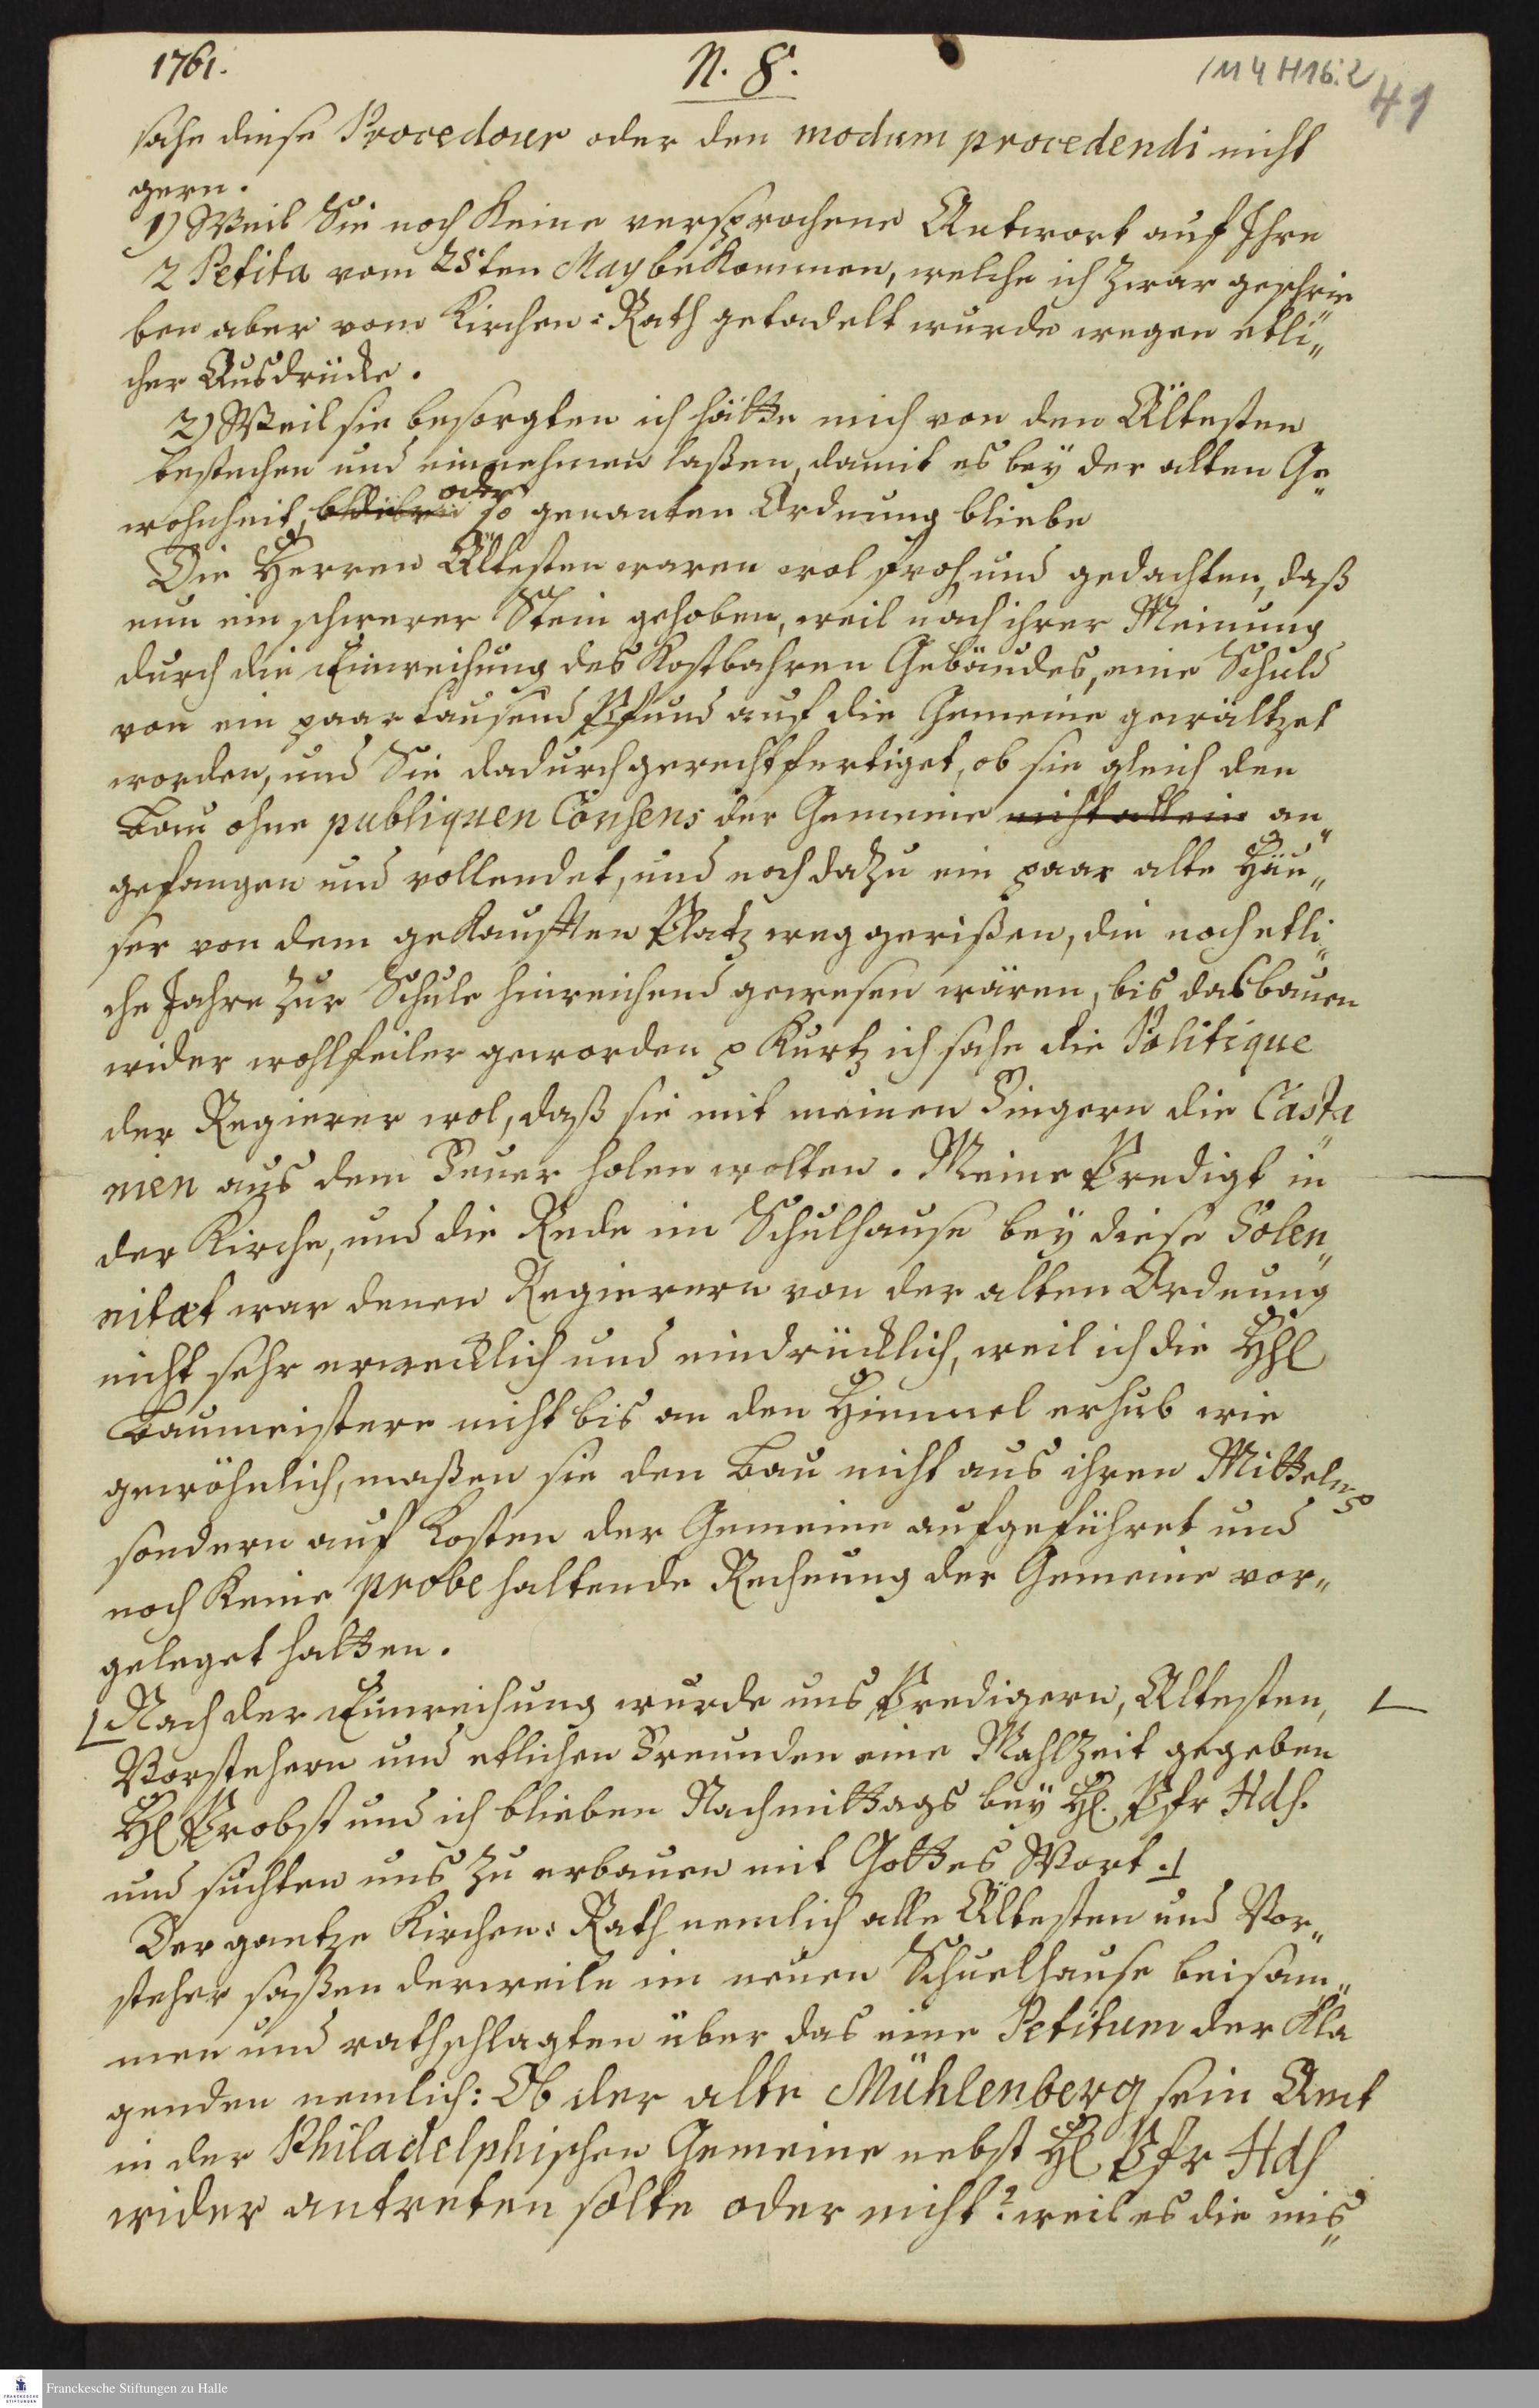 1761.
N. 8.
/M 4 H 16:2
41
sahe diese Procedour oder den modum procedendi nicht
gern.
1) Weil Sie noch keine versprochene Antwort auf Ihre
2 Petita vom 25ten May bekommen, welche ich zwar geschrie
ben aber vom Kirchen: Rath getadelt wurde wegen etli„
cher Ausdrücke.
2) Weil sie besorgten ich hätte mich von den Ältesten
bestechen und einnehmen laßen, damit es bey der alten Ge„
oder
wohnheit, so genanten Ordnung bliebe
Die Herren Ältesten waren wol froh und gedachten, daß
nun ein schwerer Stein gehoben, weil nach ihrer Meinung
durch die Einweihung des Kostbahren Gebäudes, eine Schuld
von ein paar tausend Pfund auf die Gemeine gewältzet
worden, und Sie dadurch gerechtfertiget, ob sie gleich den
Bau ohne publiquen Consens der Gemeine nicht allein an„
gefangen und vollendet, und noch dazu ein paar alte Häu„
ser von dem gekaufften Platz weggerißen, die noch etli„
che Jahre zur Schule hinreichend gewesen wären, bis das bauen
wider wohlfeiler geworden p Kurtz ich sahe die Politique
der Regierer wol, daß sie mit meinen Fingern die Casta„
nien aus dem Feuer holen wolten. Meine Predigt in
der Kirche, und die Rede im Schulhause bey diese Solen„
nitæt war denen Regierern von der alten Ordnung
nicht sehr erwecklich und eindrücklich, weil ich die HhE
Baumeistere nicht bis an den Himmel erhub wie
gewöhnlich, maßen sie den Bau nicht aus ihren Mittelen p
sondern auf Kosten der Gemeine aufgeführet und
noch keine probe haltende Rechnung der Gemeine vor„
geleget hatten.
Nach der Einweihung wurde uns Predigern, Altesten,
Vorstehern und etlichen Freunden eine Mahlzeit gegeben
HE Probst und ich blieben Nachmittags bey HE. Pfr Hdh.
und suchten uns zu erbauen mit Gottes Wort.
Der gantze Kirchen: Rath nemlich alle Ältesten und Vor„
steher saßen derweile im neuen Schuelhause beisam„
men und rathschlagten über das eine Petitum der Kla
genden nemlich: Ob der alte Mühlenberg sein Amt
in der Philadelphischen Gemeine nebst HE Pfr Hdh
wider antreten solte oder nicht? weil es die mis„
Franckesche Stiftungen zu Halle